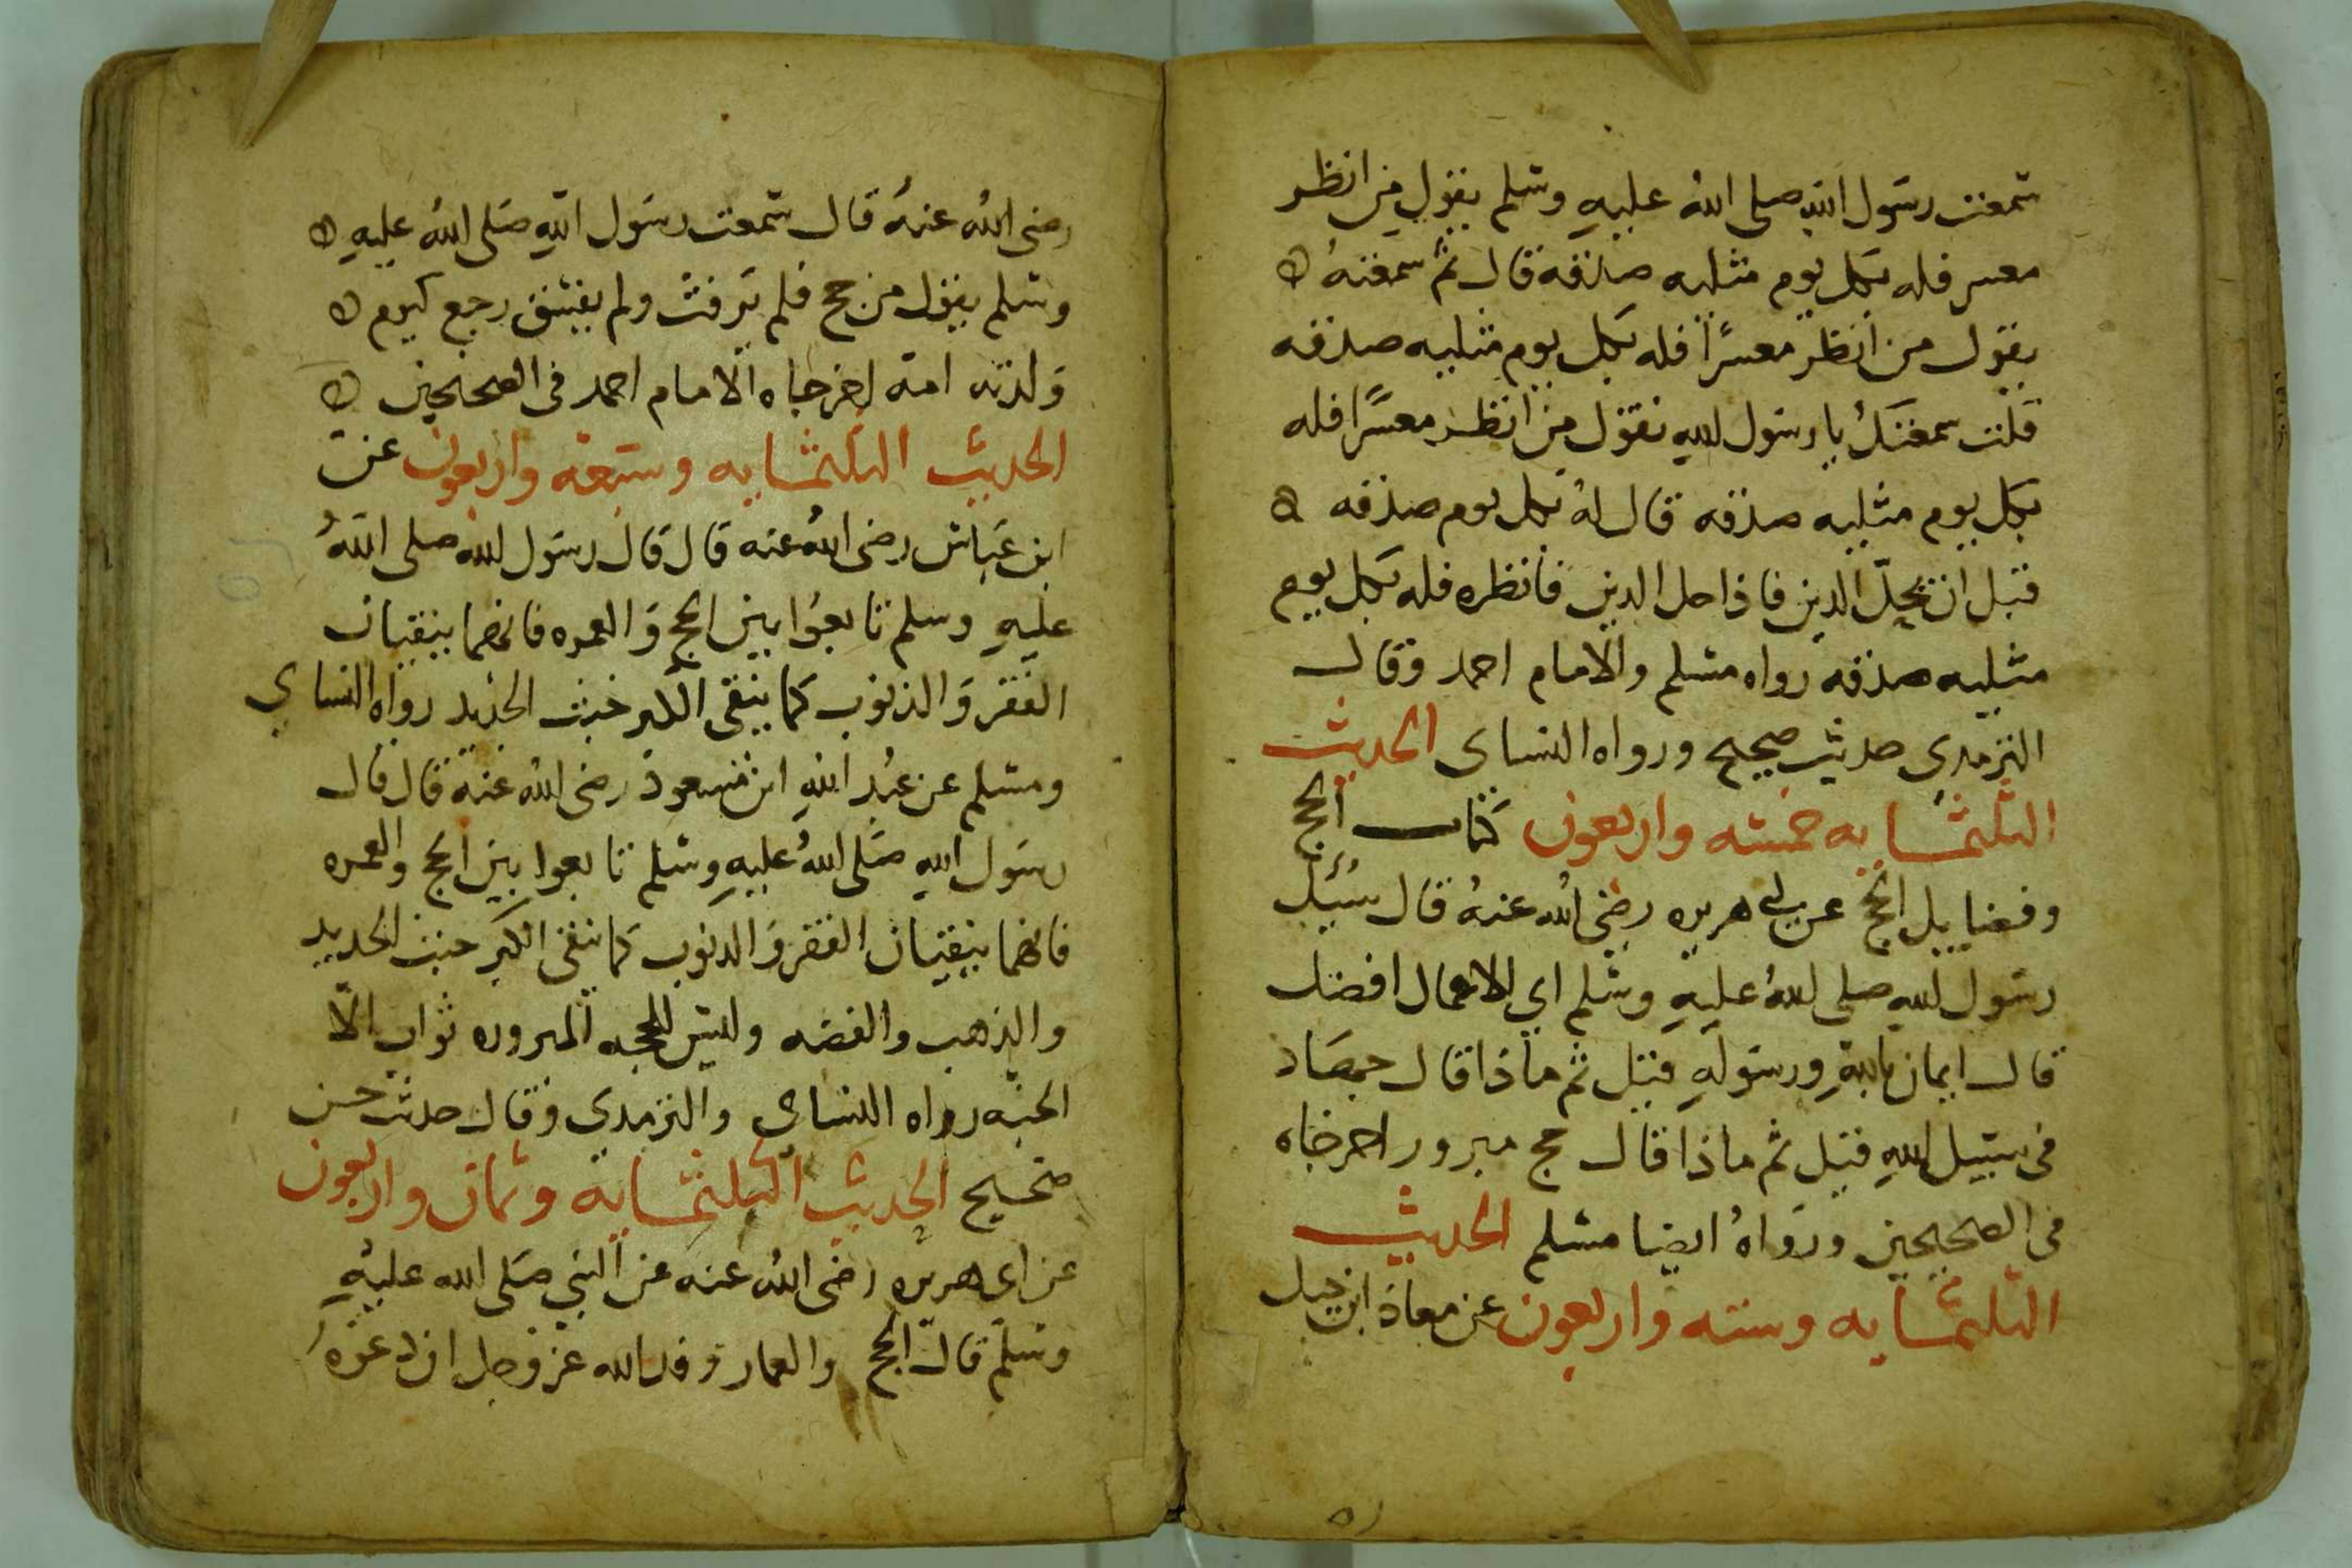 سمعت رسول الله صلى الله عليه وسلم يقول من انظر
معسر فله بكل يوم مثليه صدقه قال ثم سمعته
يقول من انظر معسرًا فله بكل يوم مثليه صدقه
قلت سمعتك يا رسول الله تقول من انظر معسرًا فله
بكل يوم مثليه صدقه قال له بكل يوم صدقه
قبل ان يحلّ الدين فاذا حل الدين فانظره فله بكل يوم
مثليه صدقه رواه مسلم والامام احمد وقال
الترمدي حديث صحيح ورواه النساى الحديث
الثلثمايه خمسه واربعون كتاب الحج
وفضايل الحج عن ابي هريره رضي الله عنهُ قال سُئِل
رسول الله صلى الله عليه وسلم اي الاعمال افضل
قال ايمان بالله ورسوله قيل ثم ماذا قال جهاد
في سبيل الله قيل ثم ماذا قال حج مبرور اخرجاه
في الصحيحين ورواهُ ايضا مسلم الحديث
الثلثمايه وسته واربعون عن معاذ ابن جبل
رضى الله عنهُ قال سمعت رسول الله صلى الله عليه
وسلم يقول من حج فلم يرفث ولم يفسق رجع كيوم
ولدته امه اخرجاه الامام احمد فى الصحيحين
الحديث الثلثمايه وسبعة واربعون عن
ابن عباس رضى الله عنه قال قال رسول الله صلى اللهُ
عليه وسلم تابعوا بين الحج والعمره فانهما ينقيان
الفقر والذنوب كما ينقى الكير خبث الحديد رواه النساي
ومسلم عن عبد الله ابن مسعود رضى الله عنه قال قال
رسول الله صلى اللهُ عليه وسلم تابعوا بين الحج والعمره
فانهما ينقيان الفقر والدنوب كما ينقى الكير خبث الحديد
والذهب والفضه وليس للحجه المبروره ثواب الّا
الجنه رواه النساى والترمدي وقال حديث حسن
صحيح الحديث الثلثمايه وثمان واربعون
عن ابى هريره رضى الله عنه عن النبي صلى الله عليه
وسلم قال الحج والعمار وفد الله عز وجل ان دعوهُ